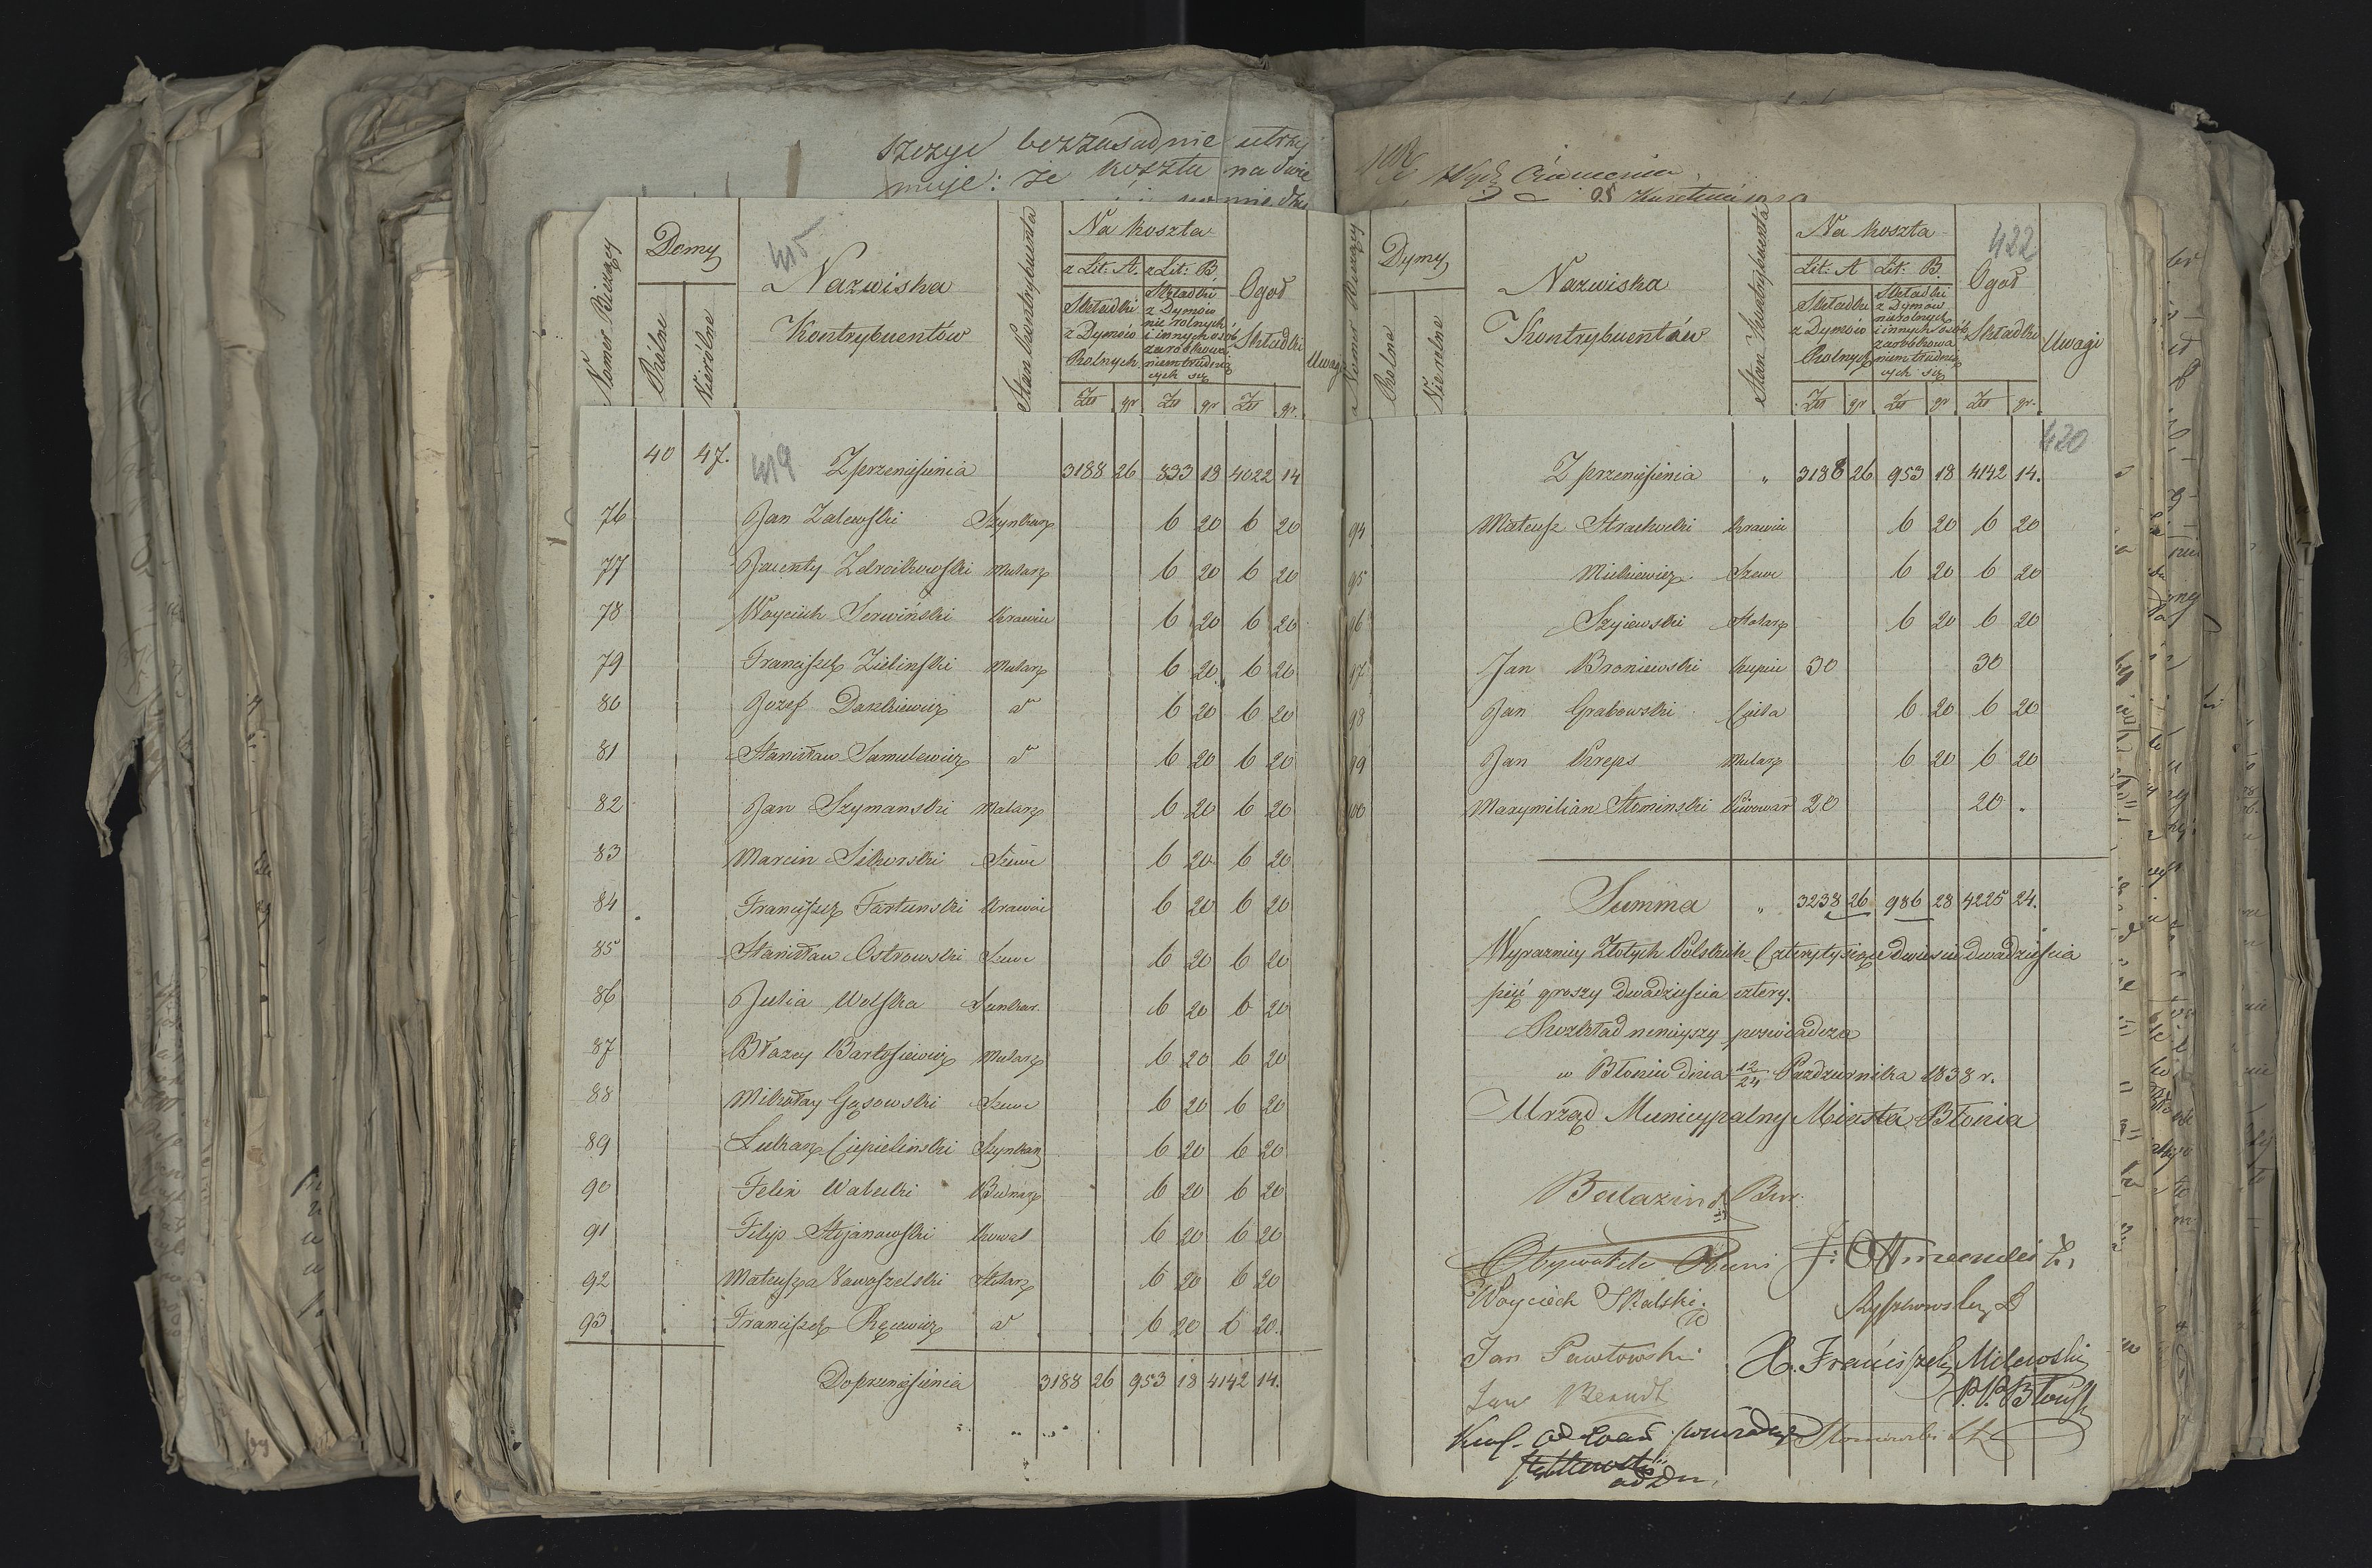 szczye bezzasadnie utrzy
muje: że koszta na dwie
415
Numer Bieżący
Domy
Rolne
Nierolne
Nazwiska
Kontrybuentów
Stan Kontrybuenta
Na koszta
z Lit: A. z Lit: B.
Składki z Dymów Rolnych
Składki z Dymów nie rolnych i innych osób zarobkowaniem trudniących się
Ogół Składki
Uwagi
Zł gr Zł gr Zł gr.
40 47. 419 Z przeniesienia 3188 26 833 18 4022 14
76 Jan Zalewski Szynkarz 6 20 6 20
77 Jacenty Zdroikowski Mularz 6 20 6 20
78 Woyciech Serwiński Krawiec 6 20 6 20
79 Franciszek Zielinski Mularz 6 20 6 20
80 Jozef Daszkiewicz d° 6 20 6 20
81 Stanisław Samulewicz d° 6 20 6 20
82 Jan Szymanski Malarz 6 20 6 20
83 Marcin Sikorski Szewc 6 20 6 20
84 Franciszek Fortunski Krawiec 6 20 6 20
85 Stanisław Ostrowski Szewc 6 20 6 20
86 Julia Wolska Szynkar. 6 20 6 20
87 Błazey Bartosiewicz Mularz 6 20 6 20
88 Mikołay Gąsowski Szewc 6 20 6 20
89 Łukasz Ciepielinski Szynkarz 6 20 6 20
90 Felix Wałecki Bednarz 6 20 6 20
91 Filip Stojanowski Kowal 6 20 6 20
92 Mateusz Stolarz 6 20 6 20
93 Franciszek Ręcewicz d° 6 20 6 20.
Do przeniesienia 3188 26 953 18 4142 14.
422
Numer Bieżący
Dymy
Rolne
Nierolne
Nazwiska
Kontrybuentów
Stan Kontrybuenta
Na koszta
Lit: A Lit: B.
Składki z Dymów Rolnych
Składki z Dymów nierolnych i innych osób zarobkowaniem trudniących się
Ogół Składki
Uwagi
Zł gr Zł gr Zł gr.
420
Z przeniesienia " 3188 26 953 18 4142 14.
94 Mateusz Krawiec 6 20 6 20
95 Mickiewicz Szewc 6 20 6 20
96 Szyiewski Stolarz 6 20 6 20
97 Jan Broniewski Kupiec 30 30
98 Jan Grabowski Cieśla 6 20 6 20
99 Jan Kreps Mularz 6 20 6 20
100 Maxymilian Słominski Piwowar 20 20
Summa " 3238 26 986 28 4225 24.
Wyrazniey Złotych Polskich Czterytysiące dwieście dwadzieścia
pięć groszy dwadzieścia cztery.
Rozkład nineyszy poswiadcza
w Błoniu dnia 12/24 Pazdziernika 1838 r.
Urząd Municypalny Miasta Błonia
Burm
Obywatele
Woyciech Skalski.
Jan Pawłowski
X. Franciszek Milewski
P. P. Błoński
Jan Berndt